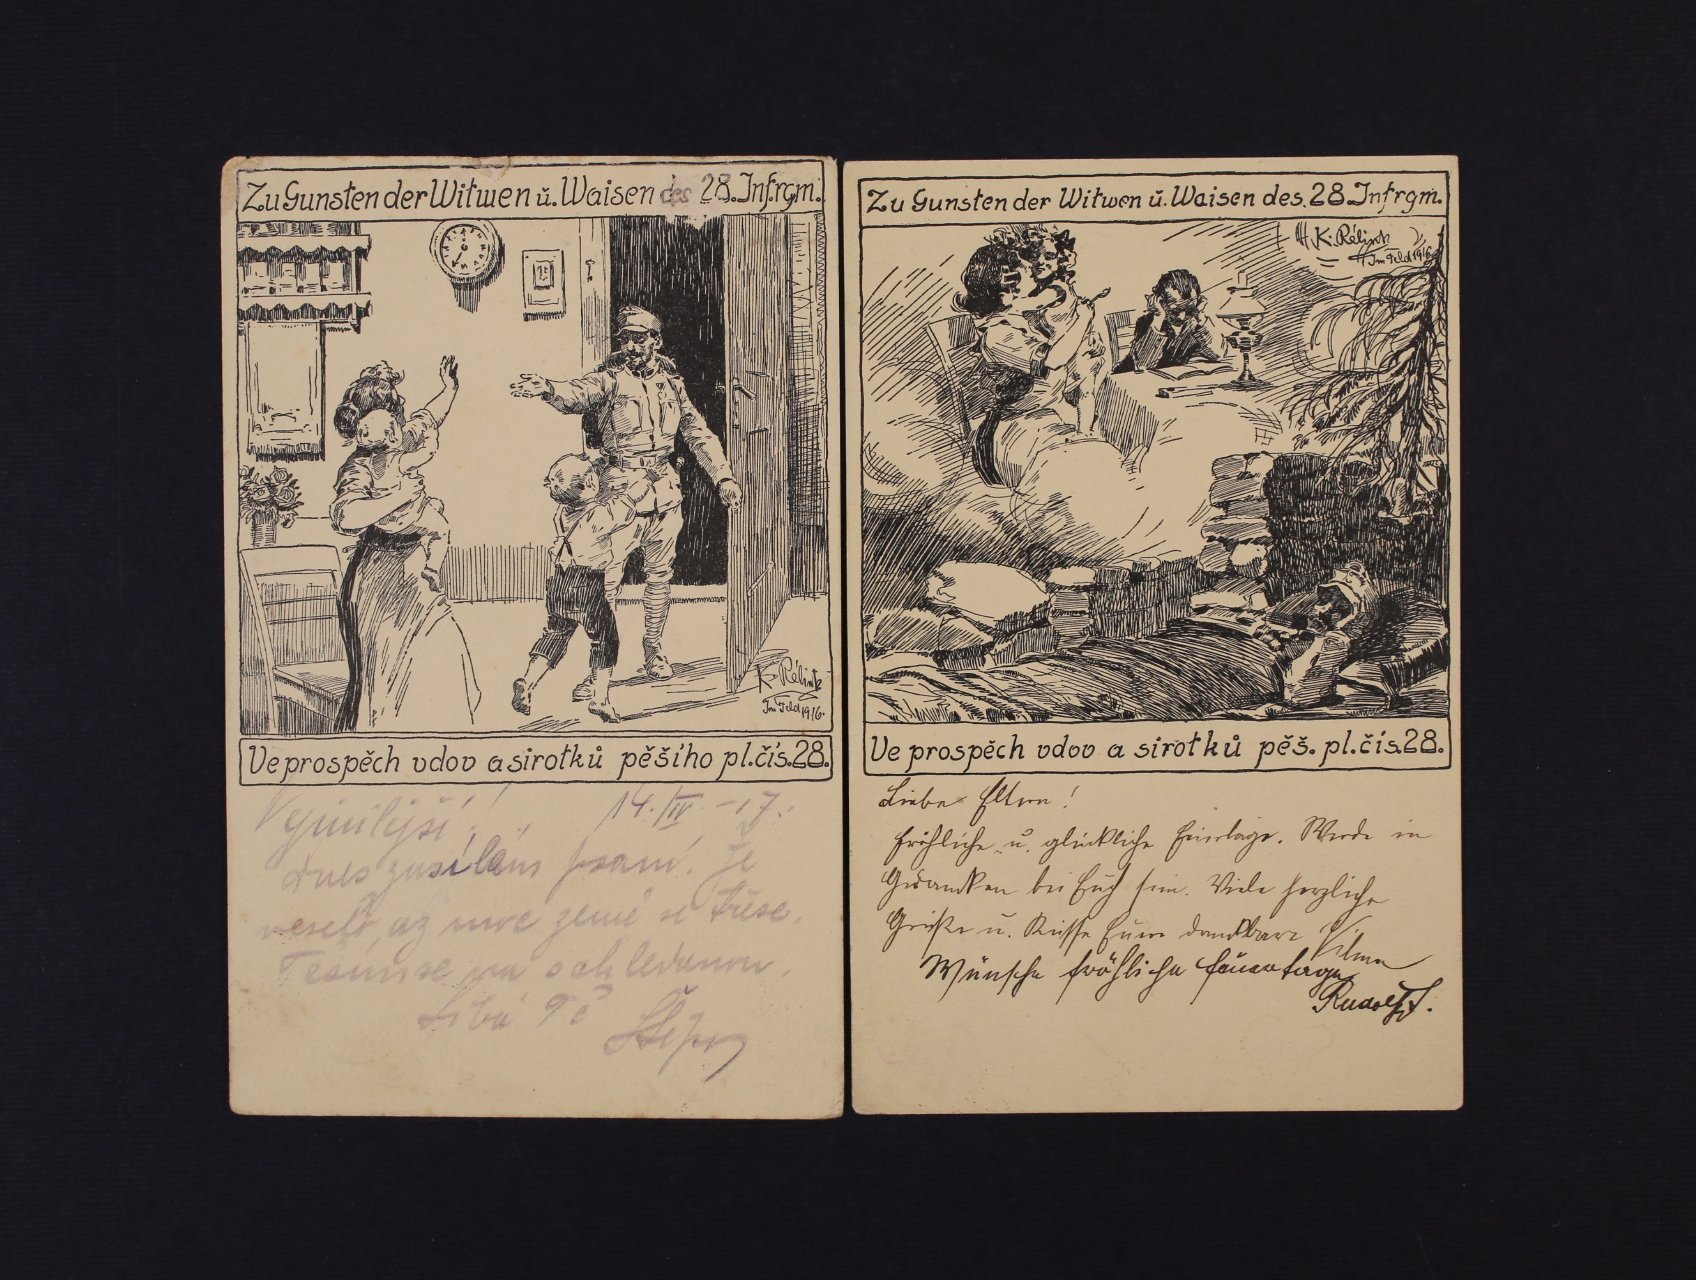 Zu Gunsten der Witwen ü. Waisen des 28. Inf.rgm.
K. Rélink
Im Feld 1916.
Ve prospěch vdov a sirotků pěšího pl. čís. 28.
14./IV. -17.
dnes zasílám psaní. Je
veselo, až zemé se třese.
Těšímse na schledanou.
Líbá Tě
Zu Gunsten der Witwen ü. Waisen des. 28. Infrgm.
K. Rélink
Im Feld 1916
Ve prospěch vdov a sirotků pěš. pl. čís. 28.
Liebe Eltern!
Fröhliche u. glückliche Feiertage. Werde in
Gedanken bei Euch sein. Viele herzliche
Grüße u. Küsse Eure dankbare Vilma
Wünsche fröhliche Feiertage
Rudolf